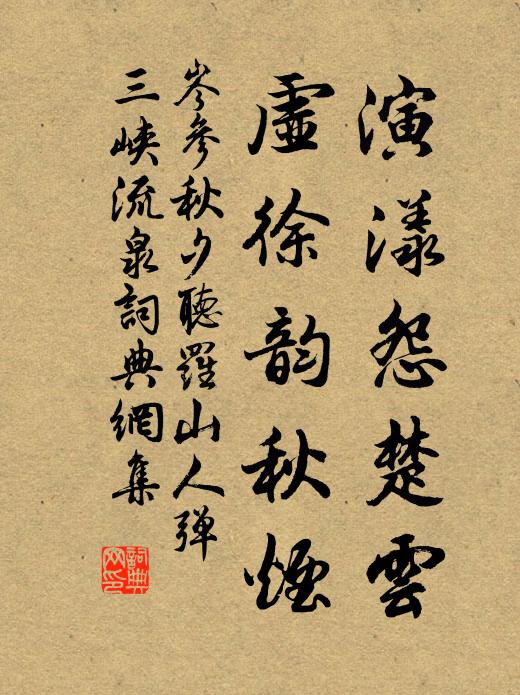 演漾怨楚雲
虛徐韵秋煙
岑參秋夕聽羅山人彈
三峽流泉詞典網集
詞典
网印